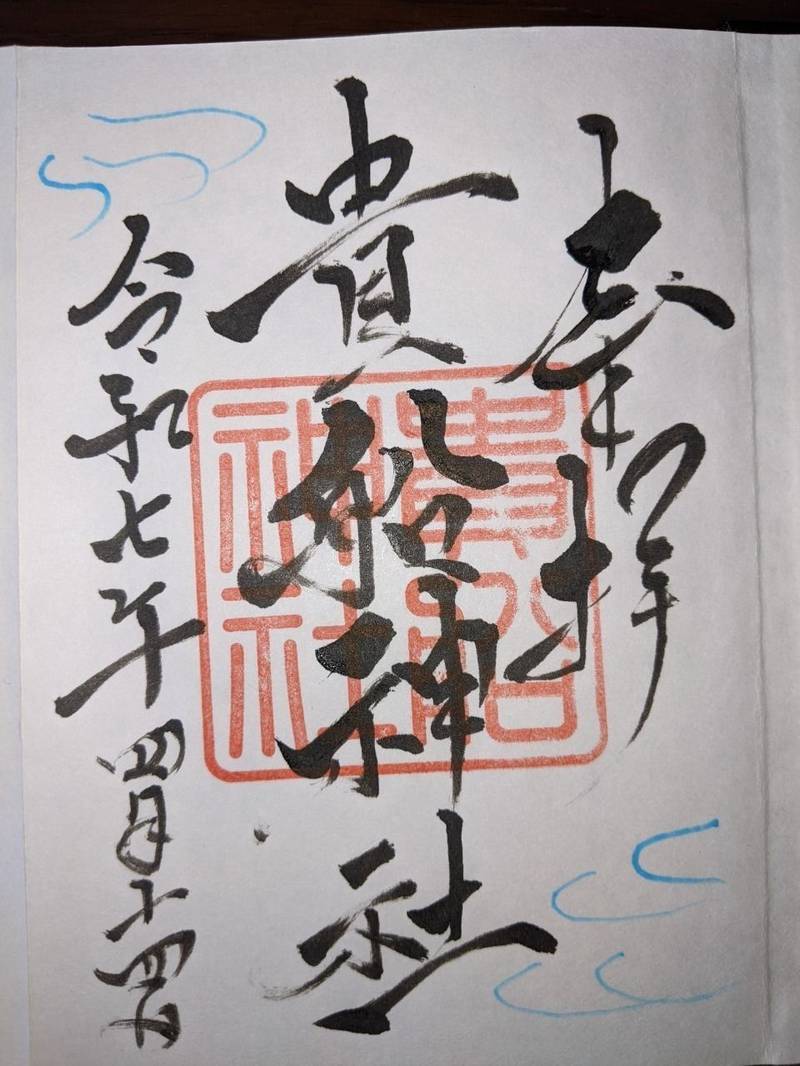 奉拝
貴船神社
貴船
神社
令和七年四月十四日